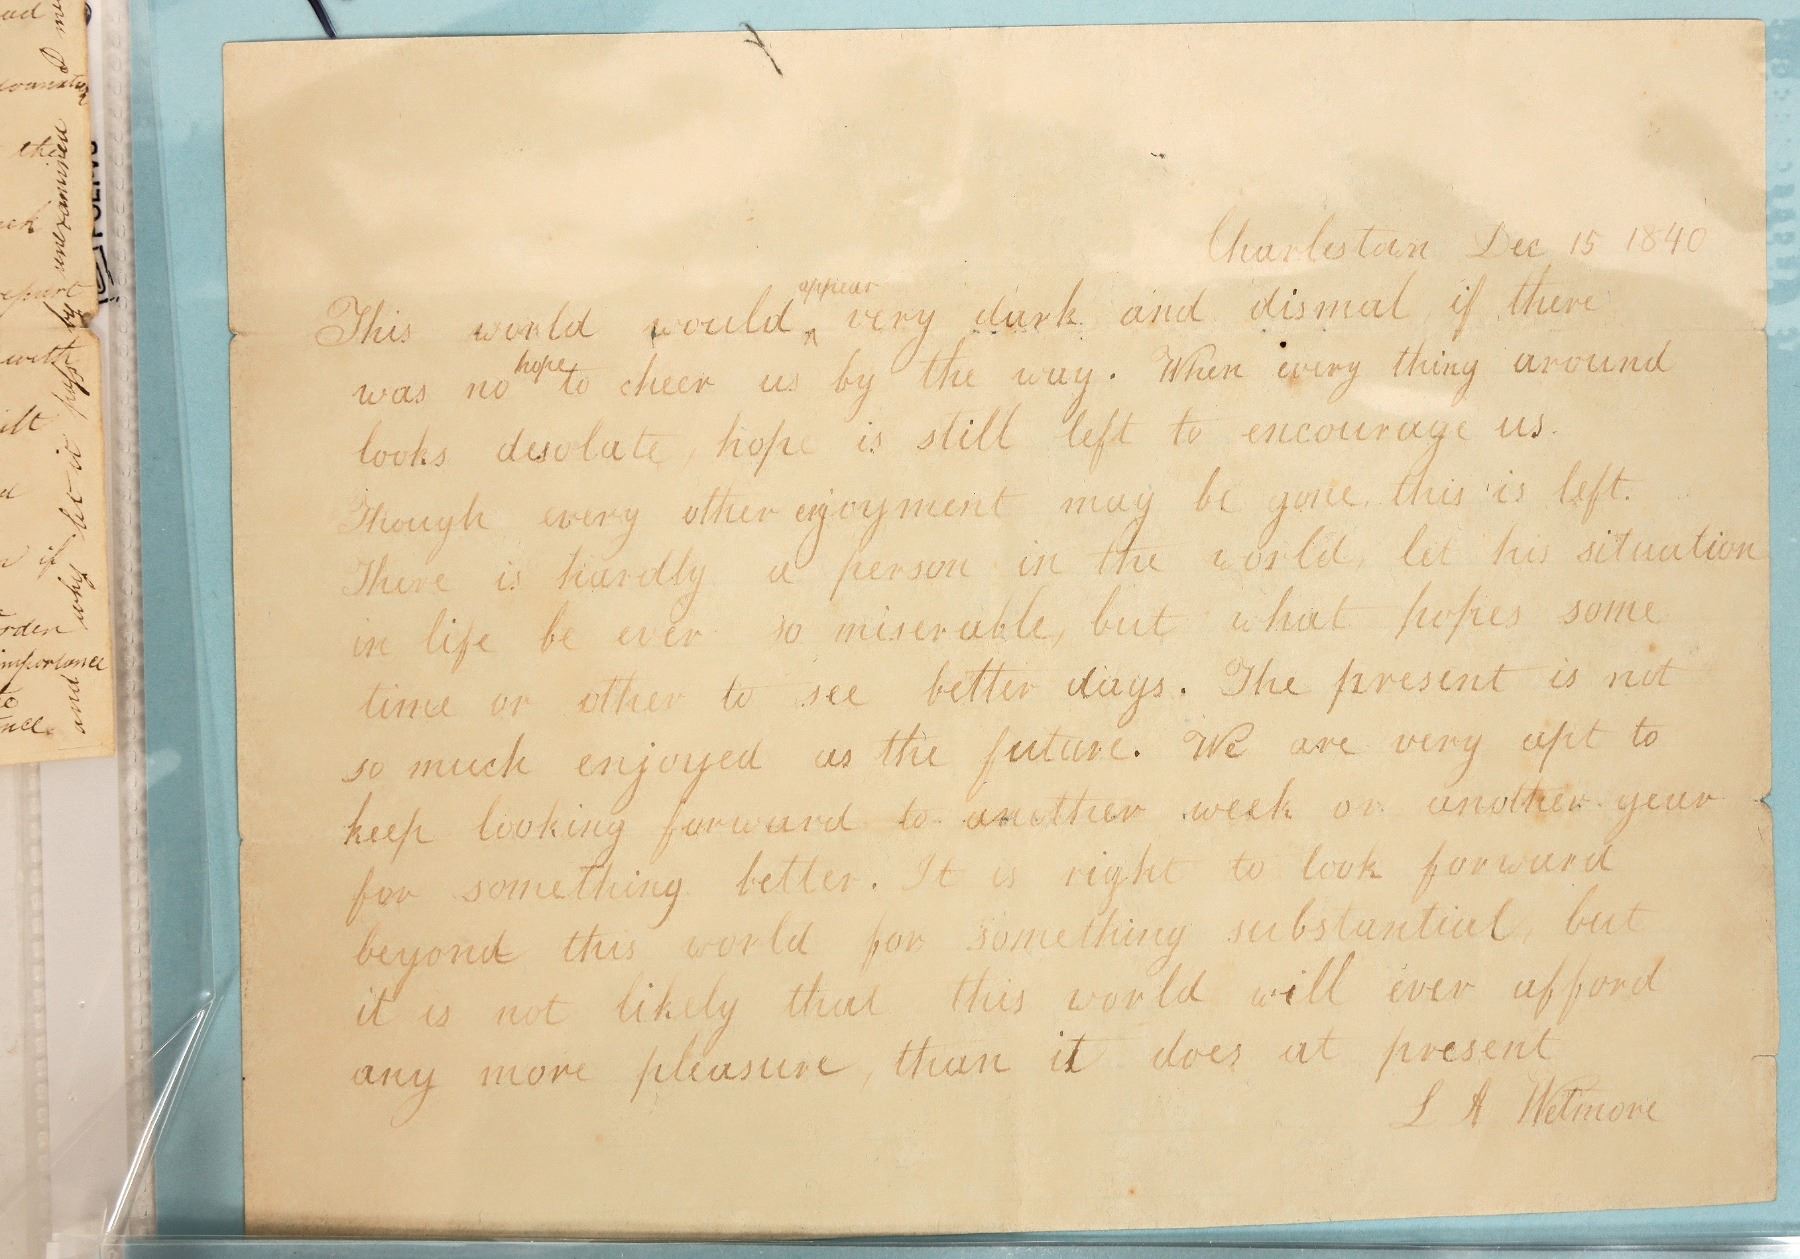 Charlestown Dec 15 1840
This world would appear very dark and dismal if there
was no hope to cheer us by the way. When every thing around
looks desolate, hope is still left to encourage us.
Though every other enjoyment may be gone, this is left.
There is hardly a person in the world, let his situation
in life be ever so miserable, but what hopes some
time or other to see better days. The present is not
so much enjoyed as the future. We are very apt to
keep looking forward to another week or another year
for something better. It is right to look forward
beyond this world for something substantial, but
it is not likely that this world will ever afford
any more pleasure, than it does at present
L A Wetmore
the
with
if
importance
and why let it pass by unexamined